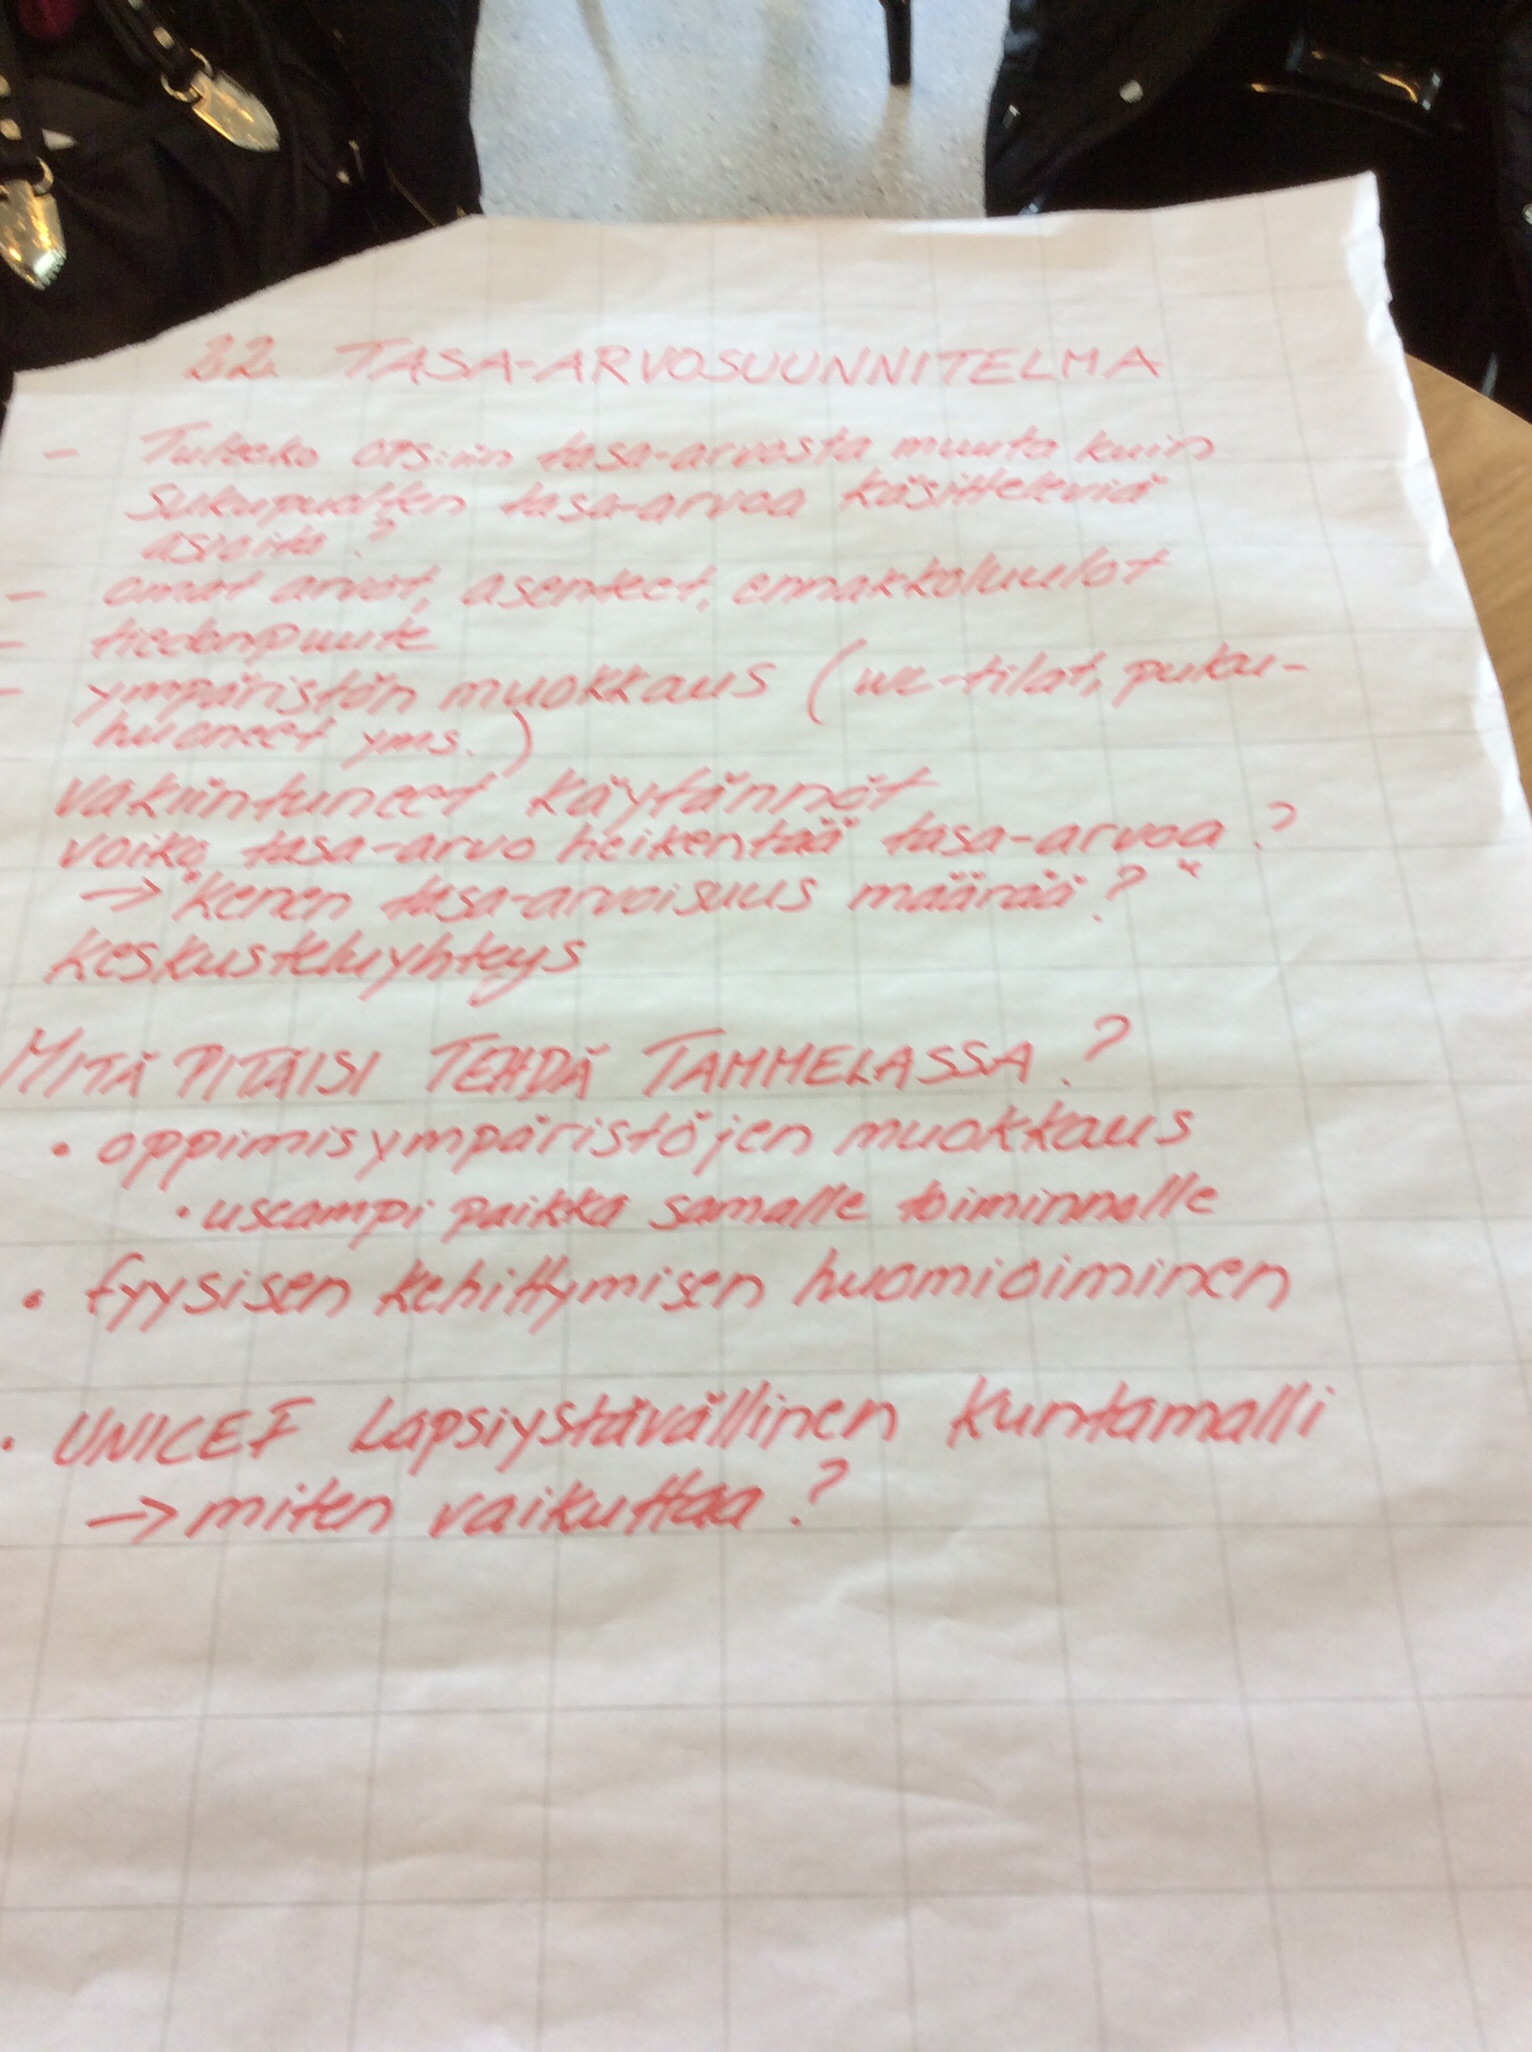 32. TASA-ARVOSUUNNITELMA
- Tuleeko OPS:iin tasa-arvosta muuta kuin
sukupuolten tasa-arvoa käsitteleviä
asioita?
- omat arvot, asenteet, ennakkoluulot
- tiedonpuute
- ympäristön muokkaus (wc-tilat, puku-
huoneet yms.)
vakiintuneet käytännöt
voiko tasa-arvo heikentää tasa-arvoa?
→ "kenen tasa-arvoisuus määrää?"
keskusteluyhteys
MITÄ PITÄISI TEHDÄ TAMMELASSA?
• oppimisympäristöjen muokkaus
• useampi paikka samalle toiminnalle
• fyysisen kehittymisen huomioiminen
• UNICEF Lapsiystävällinen kuntamalli
→ miten vaikuttaa?